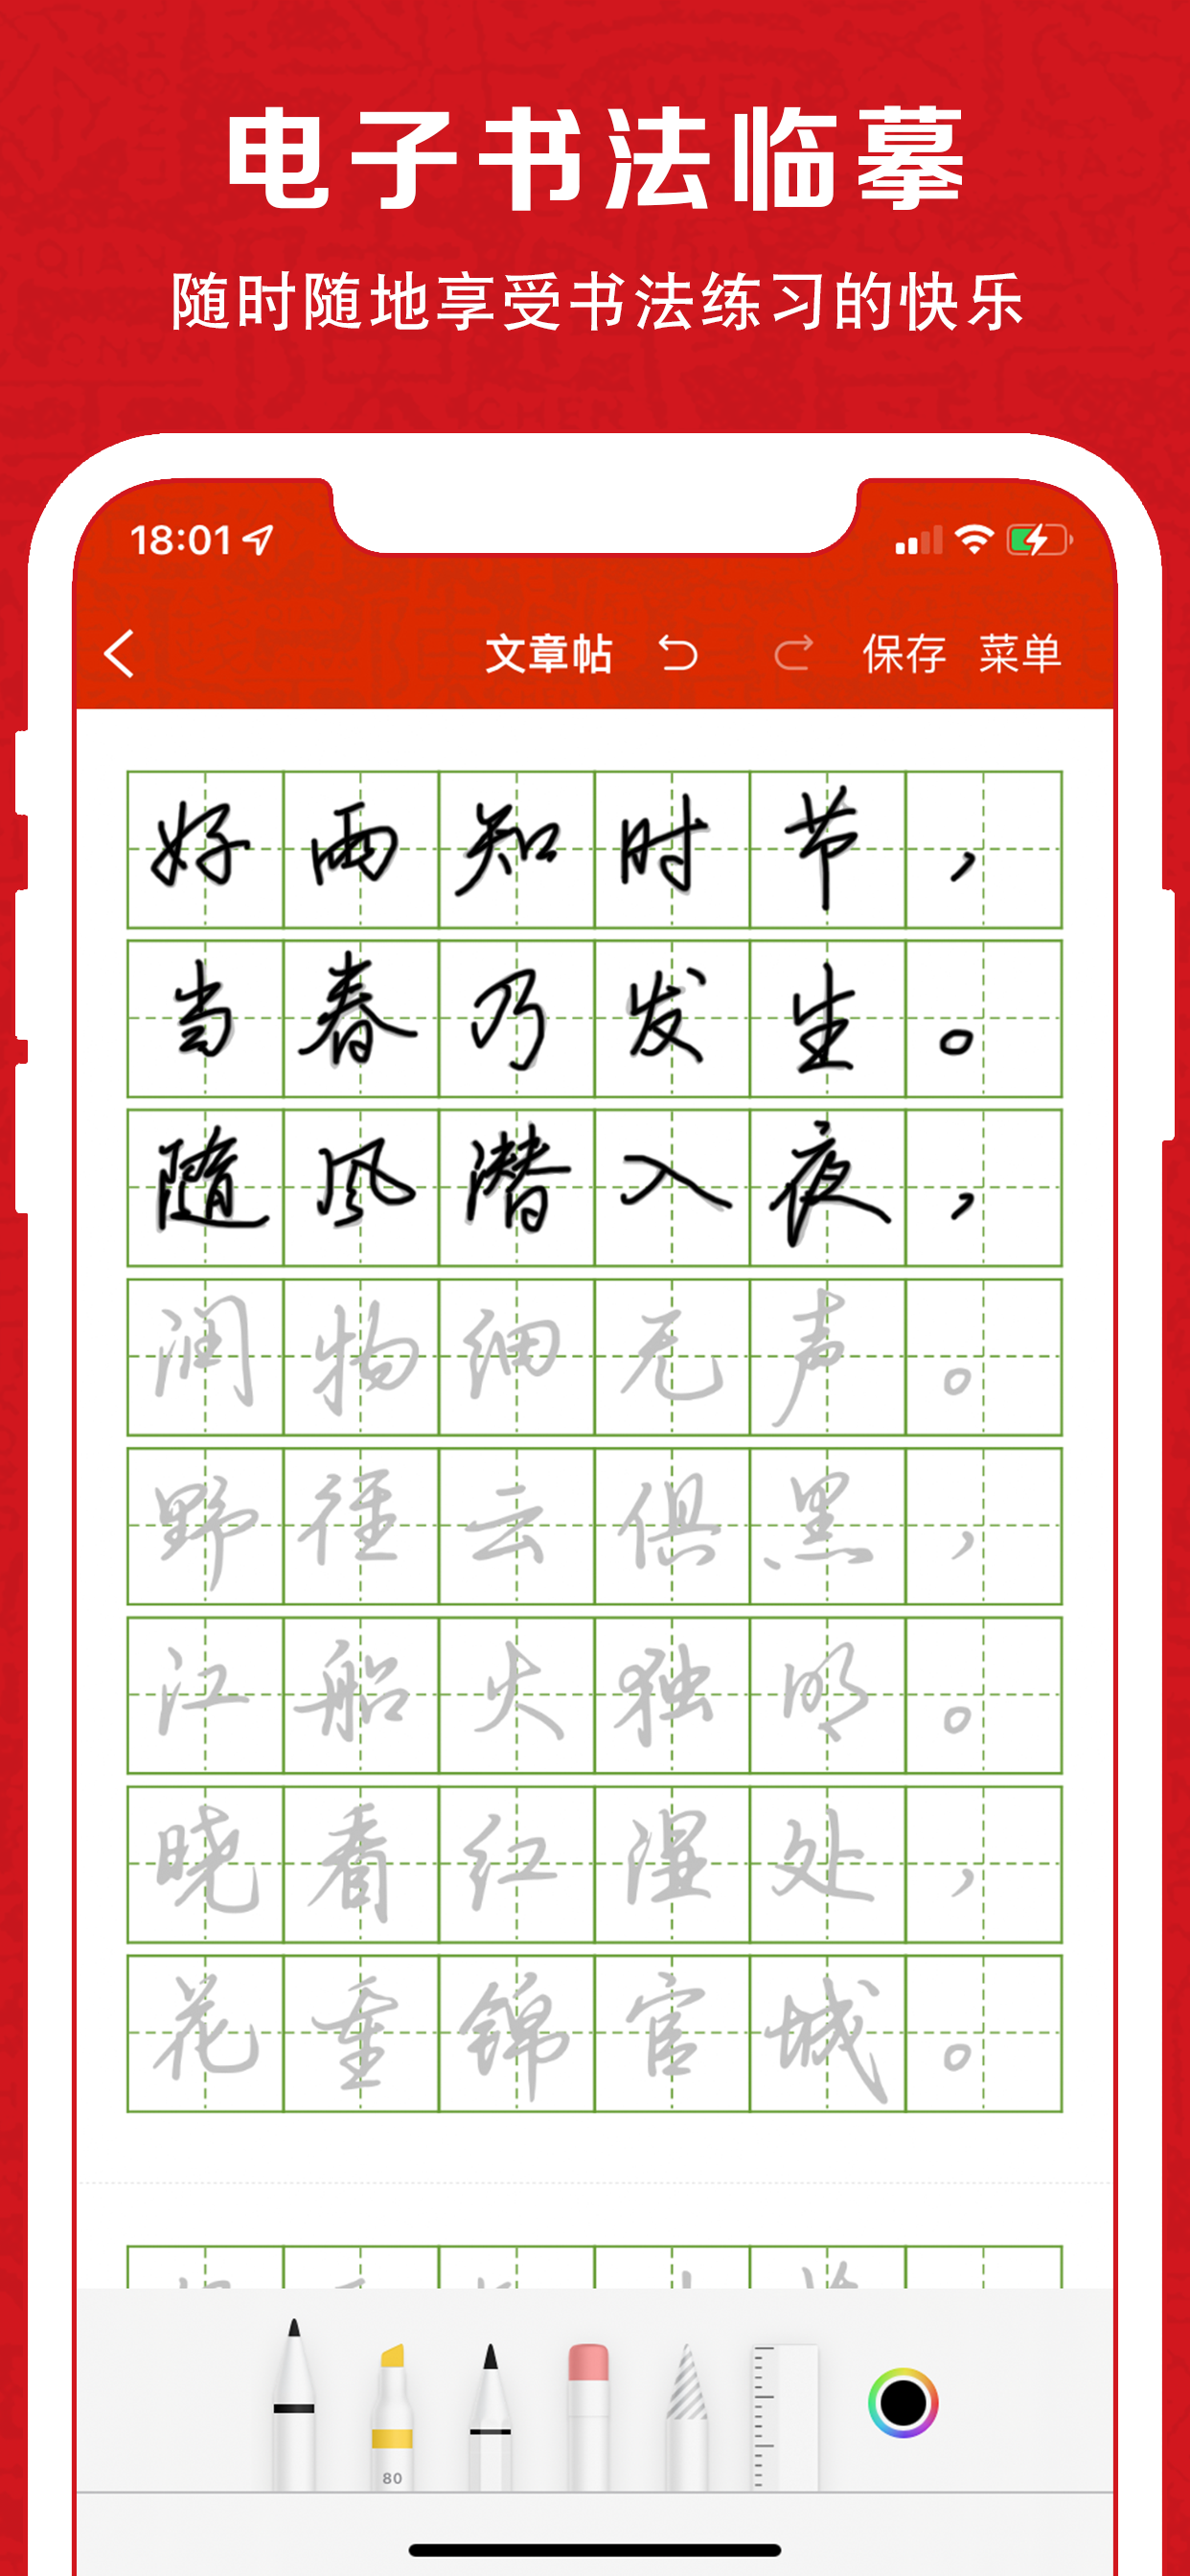 电子书法临摹
随时随地享受书法练习的快乐
18:01
文章帖 保存 菜单
好雨知时节，
当春乃发生。
随风潜入夜，
润物细无声。
野径云俱黑，
江船火独明。
晓看红湿处，
花重锦官城。
80